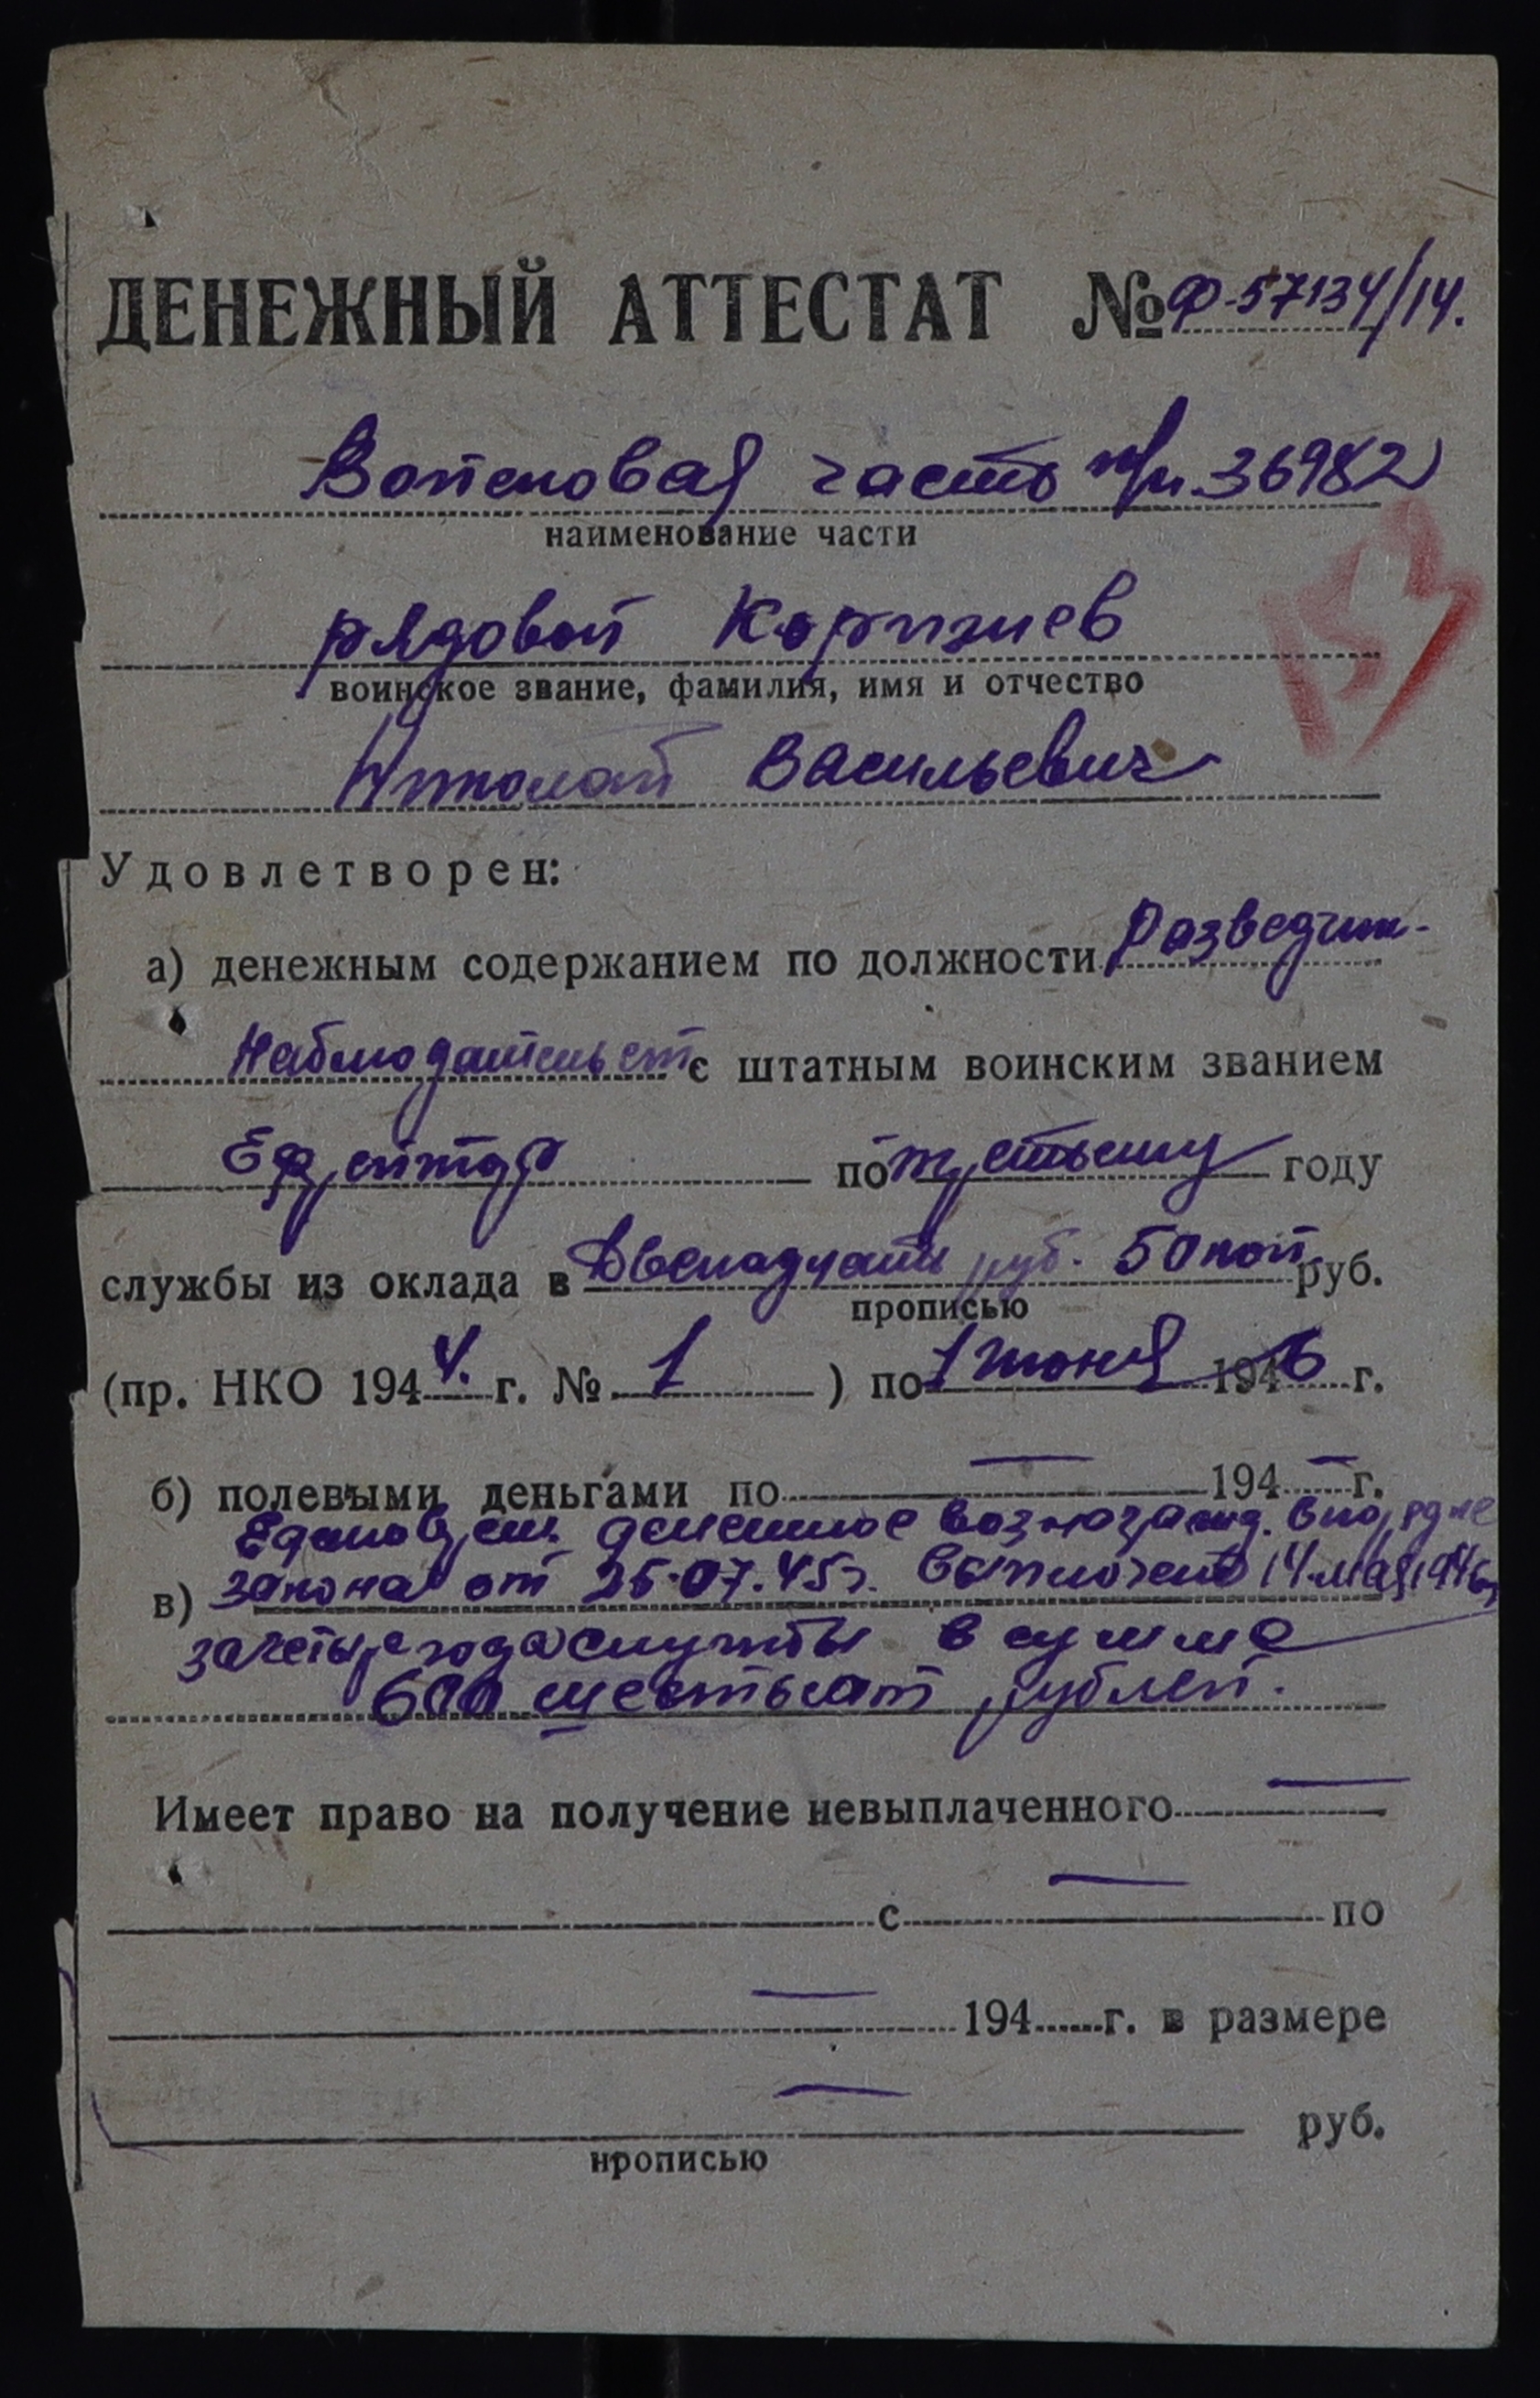 ДЕНЕЖНЫЙ АТТЕСТАТ № Ф-57134/14.
Войсковая часть п/п. 36982
наименование части
рядовой
воинское звание, фамилия, имя и отчество
Николай Васильевич
Удовлетворен:
а) денежным содержанием по должности Разведчик-
наблюдательст с штатным воинским званием
Ефрейтор по третьему году
службы из оклада в Двенадцать руб. 50 коп руб.
прописью
(пр. НКО 1944. г. № 1 ) по 1 июня 1946 г.
б) полевыми деньгами по — 194 — г.
Единоврем. денежное вознагражд. в порядке
в) закона от 25.07.45г. выплочено 14 мая 1946г
за четыре года службы в сумме
600 шестьсот рублей.
Имеет право на получение невыплаченного —
— с — по
— 194 г. в размере
— руб.
прописью